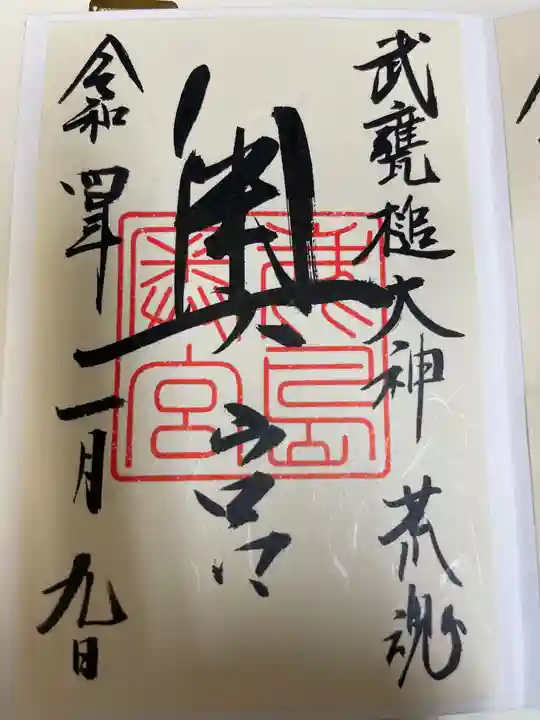 武甕槌大神 荒魂
奥宮
鹿島奥宮
令和四年一月九日